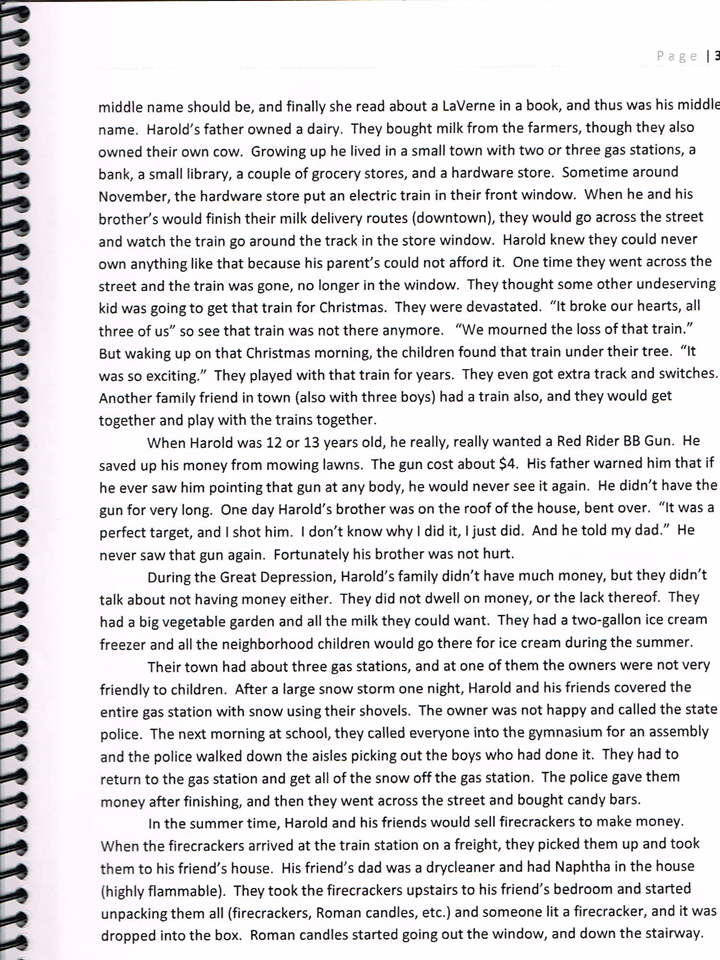 Page | 3
middle name should be, and finally she read about a LaVerne in a book, and thus was his middle
name.  Harold's father owned a dairy.  They bought milk from the farmers, though they also
owned their own cow.  Growing up he lived in a small town with two or three gas stations, a
bank, a small library, a couple of grocery stores, and a hardware store.  Sometime around
November, the hardware store put an electric train in their front window.  When he and his
brother's would finish their milk delivery routes (downtown), they would go across the street
and watch the train go around the track in the store window.  Harold knew they could never
own anything like that because his parent's could not afford it.  One time they went across the
street and the train was gone, no longer in the window.  They thought some other undeserving
kid was going to get that train for Christmas.  They were devastated.  "It broke our hearts, all
three of us" so see that train was not there anymore.  "We mourned the loss of that train."
But waking up on that Christmas morning, the children found that train under their tree.  "It
was so exciting."  They played with that train for years.  They even got extra track and switches.
Another family friend in town (also with three boys) had a train also, and they would get
together and play with the trains together.
When Harold was 12 or 13 years old, he really, really wanted a Red Rider BB Gun.  He
saved up his money from mowing lawns.  The gun cost about $4.  His father warned him that if
he ever saw him pointing that gun at any body, he would never see it again.  He didn't have the
gun for very long.  One day Harold's brother was on the roof of the house, bent over.  "It was a
perfect target, and I shot him.  I don't know why I did it, I just did.  And he told my dad."  He
never saw that gun again.  Fortunately his brother was not hurt.
During the Great Depression, Harold's family didn't have much money, but they didn't
talk about not having money either.  They did not dwell on money, or the lack thereof.  They
had a big vegetable garden and all the milk they could want.  They had a two-gallon ice cream
freezer and all the neighborhood children would go there for ice cream during the summer.
Their town had about three gas stations, and at one of them the owners were not very
friendly to children.  After a large snow storm one night, Harold and his friends covered the
entire gas station with snow using their shovels.  The owner was not happy and called the state
police.  The next morning at school, they called everyone into the gymnasium for an assembly
and the police walked down the aisles picking out the boys who had done it.  They had to
return to the gas station and get all of the snow off the gas station.  The police gave them
money after finishing, and then they went across the street and bought candy bars.
In the summer time, Harold and his friends would sell firecrackers to make money.
When the firecrackers arrived at the train station on a freight, they picked them up and took
them to his friend's house.  His friend's dad was a drycleaner and had Naphtha in the house
(highly flammable).  They took the firecrackers upstairs to his friend's bedroom and started
unpacking them all (firecrackers, Roman candles, etc.) and someone lit a firecracker, and it was
dropped into the box.  Roman candles started going out the window, and down the stairway.